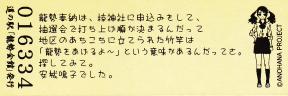 016334
道の駅「龍勢会館」発行
龍勢奉納は、椋神社に申込みをして、
抽選会で打ち上げ順が決まるんだって
地区のあちこちに立てられた竹竿は
「龍勢をあげるよ～」という意味があるんだってさ。
探してみてっ。
安城鳴子でした。
©ANOHANA PROJECT